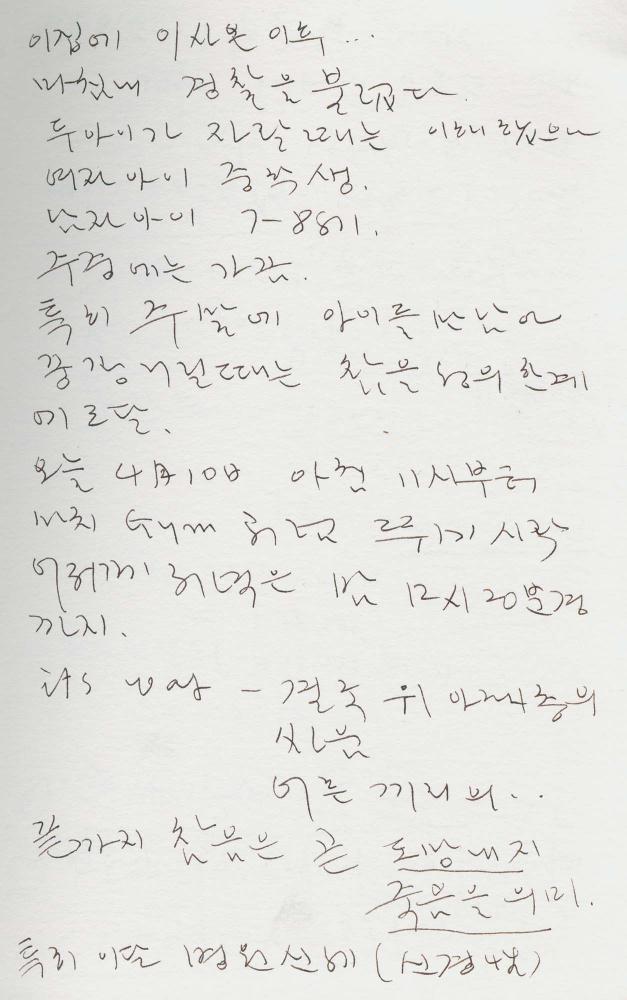 이집에 이사온 이후 ...
마침내 경찰을 불렀다.
두아이가 자랄 때는 이해했으나
여자 아이 중학생.
남자 아이 7-8세.
주경에는 가끔.
특히 주말에 아이들 만남이
쿵쾅거릴때는 참을성의 한계
에 도달.
오늘 4月10日 아침 11시부터
마치 Gym 처럼 뛰기 시작
어제 저녁은 밤 12시 20분경
까지.
its way - 결국 위 아래층의
싸움
어른 끼리의..
끝까지 참음은 곧 도망내지
죽음을 의미.
특히 이또 병원신세 (신경